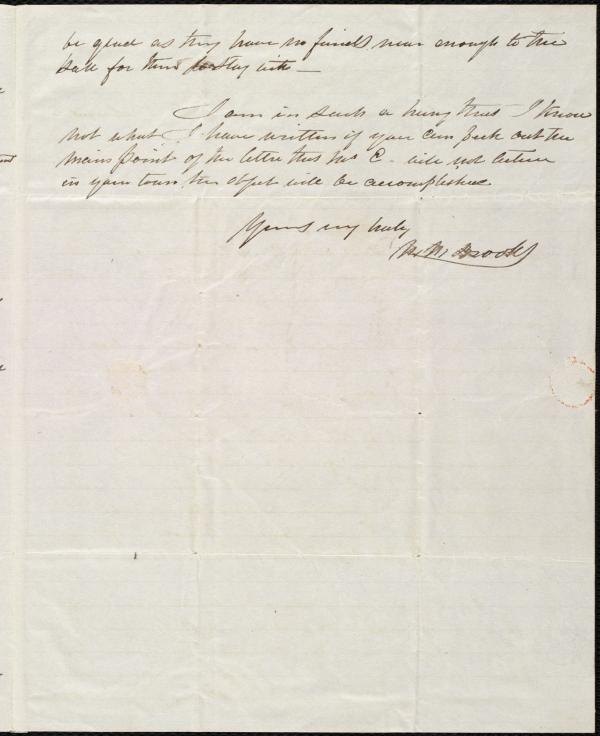 be glad as they have no friends near enough to the
Hall for them to stay with —
I am in such a hurry that I know
not what I have written if you can pick out the
main point of the letter that Mr C. will not lecture
in your town the object will be accomplished
Yours very truly
M. M. Brooks